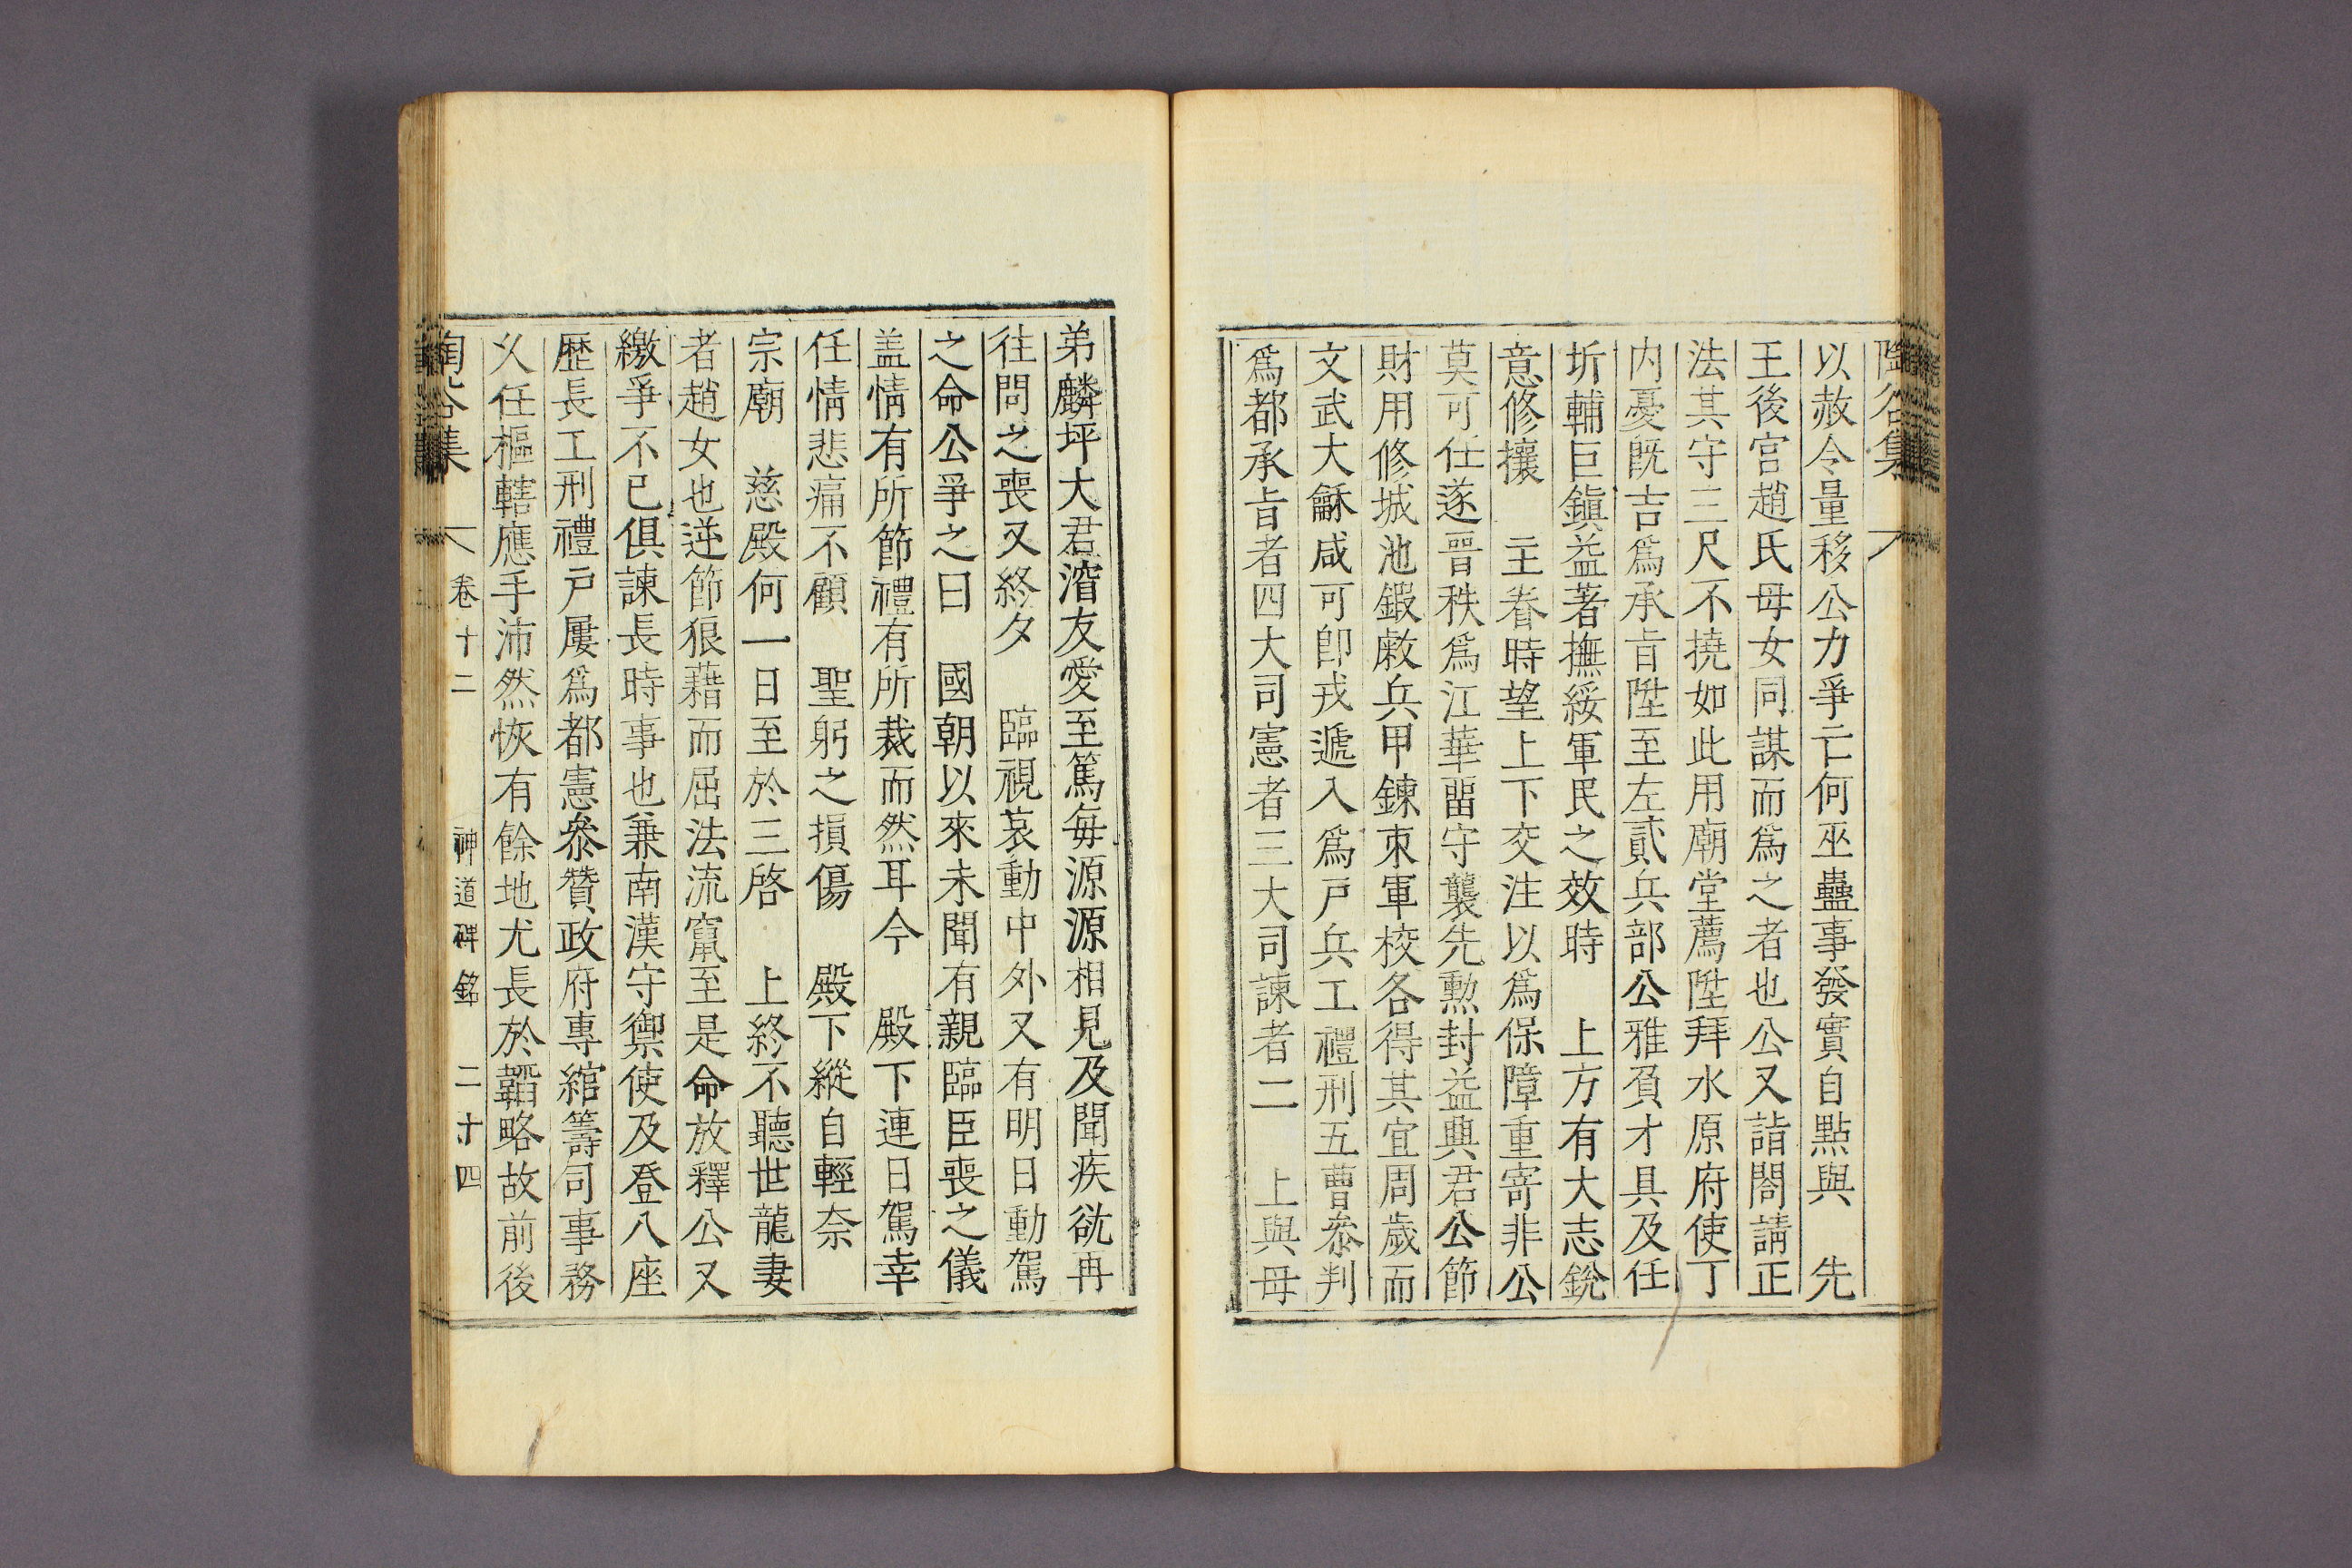 陶谷集
以赦令量移公力爭亡何巫蠱事發實自點與　先
王後宮趙氏母女同謀而爲之者也公又詣閤請正
法其守三尺不撓如此用廟堂薦陞拜水原府使丁
内憂旣吉爲承旨陞至左貳兵部公雅負才具及任
圻輔巨鎭益著撫綏軍民之效時　上方有大志銳
意修攘　主眷時望上下交注以爲保障重寄非公
莫可任遂晉秩爲江華留守襲先勲封益興君公節
財用修城池鍛敹兵甲鍊束軍校各得其宜周歲而
文武大龢咸可卽戎遞入爲戶兵工禮刑五曹叅判
爲都承旨者四大司憲者三大司諫者二　上與母
弟麟坪大君㴭友愛至篤每源源相見及聞疾㰸再
往問之喪又終夕　臨視哀動中外又有明日動駕
之命公爭之曰　國朝以來未聞有親臨臣喪之儀
盖情有所節禮有所裁而然耳今　殿下連日駕幸
任情悲痛不顧　聖躬之損傷　殿下縱自輕奈
宗廟　慈殿何一日至於三啓　上終不聽世龍妻
者趙女也逆節狼藉而屈法流竄至是命放釋公又
繳爭不已俱諫長時事也兼南漢守禦使及登八座
歷長工刑禮戶屢爲都憲叅贊政府專綰籌司事務
久任樞轄應手沛然恢有餘地尤長於韜略故前後
陶谷集　卷十二　神道碑銘　二十四